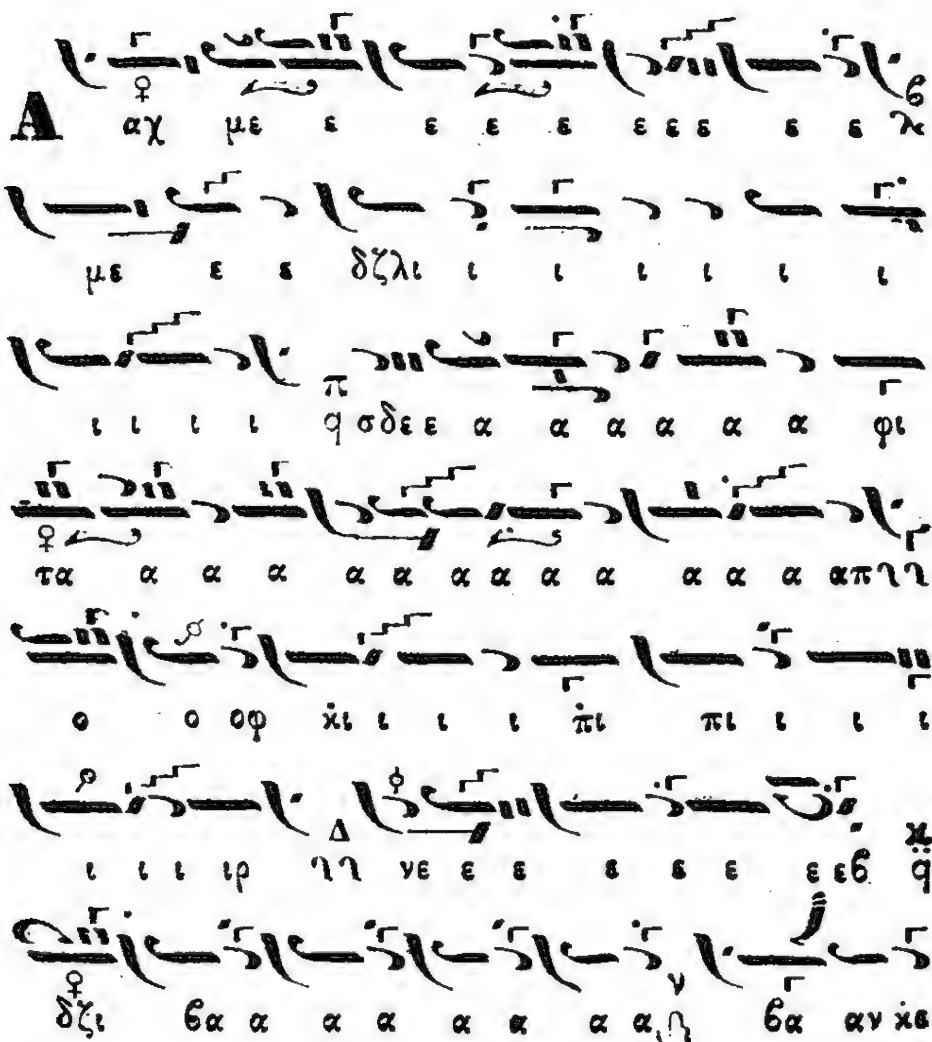 Α αχ με ε ε ε ε ε ε ε ε ε λε
με ε ε δζλι ι ι ι ι ι ι
ι ι ι ι π q σδε ε α α α α α α φι
τα α α α α α α α α α α α α απ
ο ο οφ κ̇ι ι ι ι π̇ι πι ι ι ι
ι ι ι ιρ Δ νε ε ε ε ε ε ε εϐ ϰ q̈
δζι ϐα α α α α α α α ν ϐα αν κ̇ε